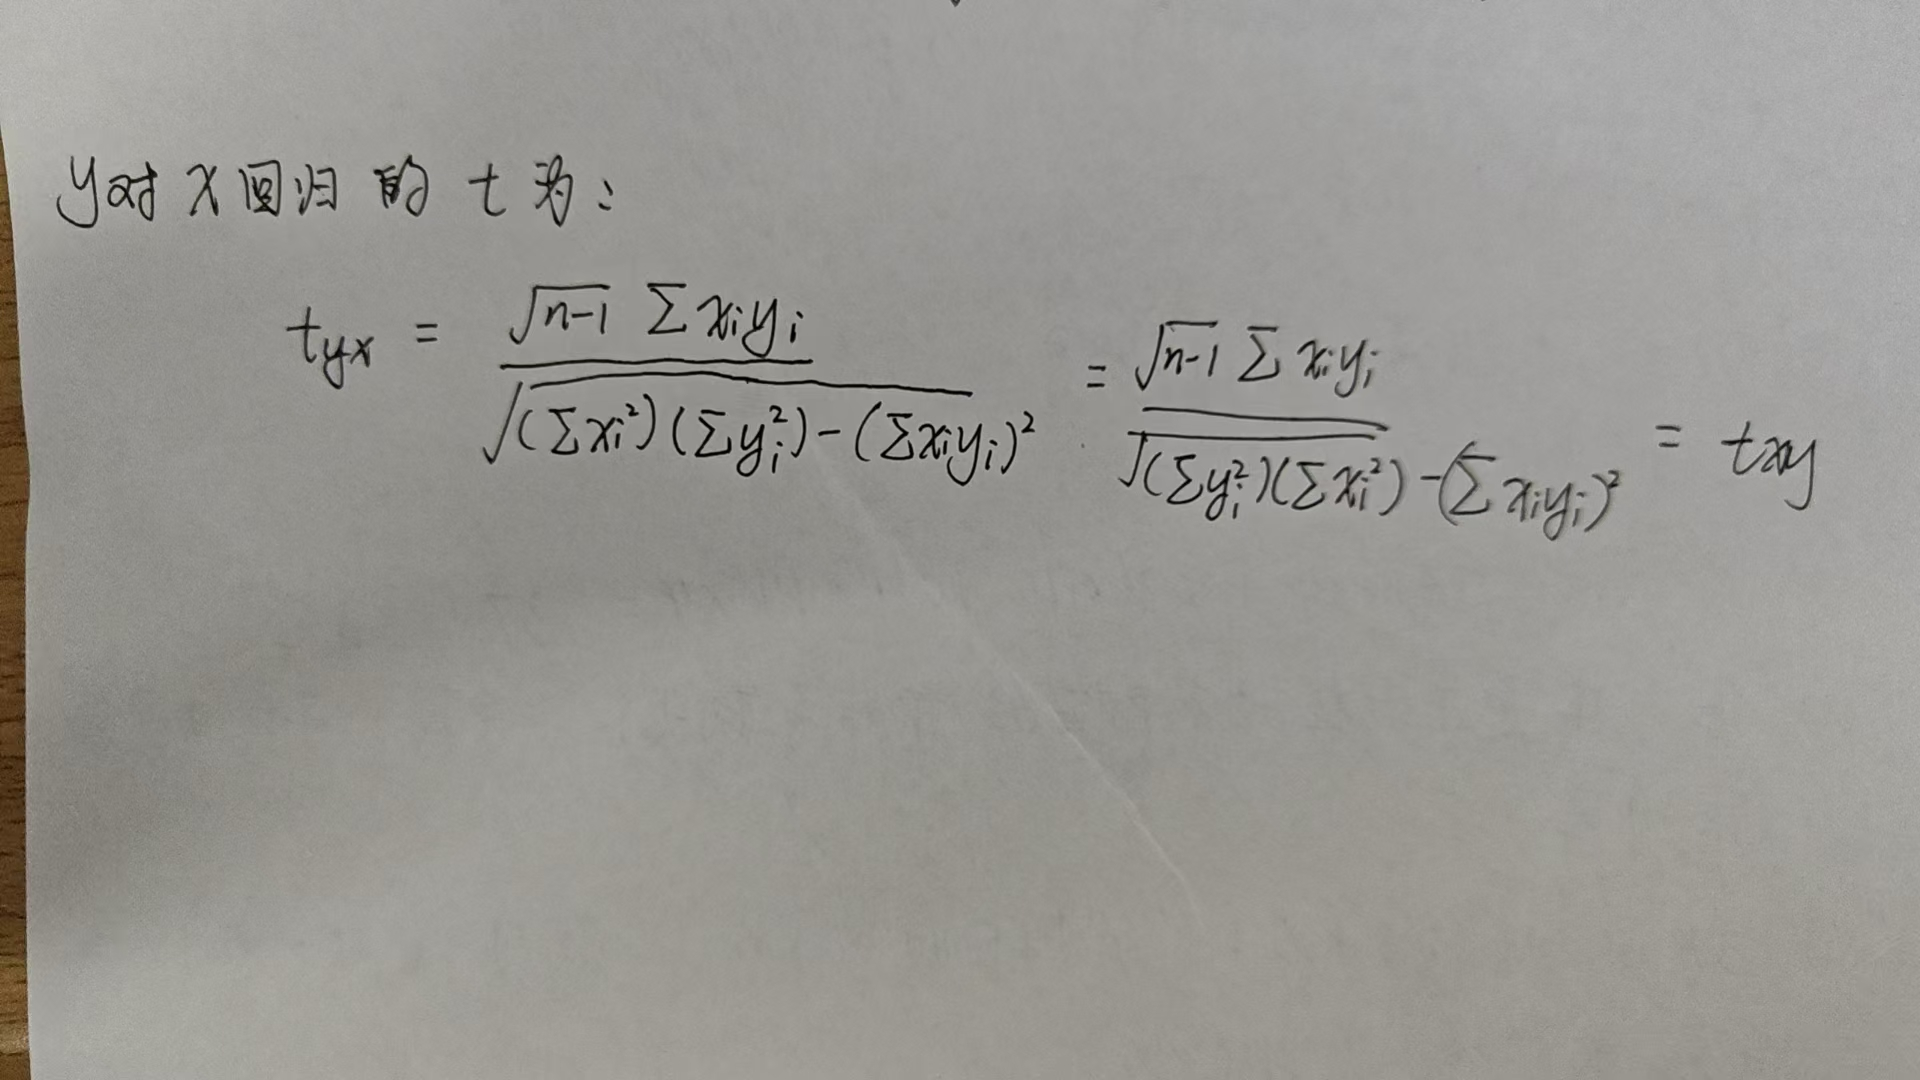 y对x回归的t为:
t_{yx} = \frac{\sqrt{n-1} \sum x_i y_i}{\sqrt{(\sum x_i^2)(\sum y_i^2) - (\sum x_i y_i)^2}} = \frac{\sqrt{n-1} \sum x_i y_i}{\sqrt{(\sum y_i^2)(\sum x_i^2) - (\sum x_i y_i)^2}} = t_{xy}